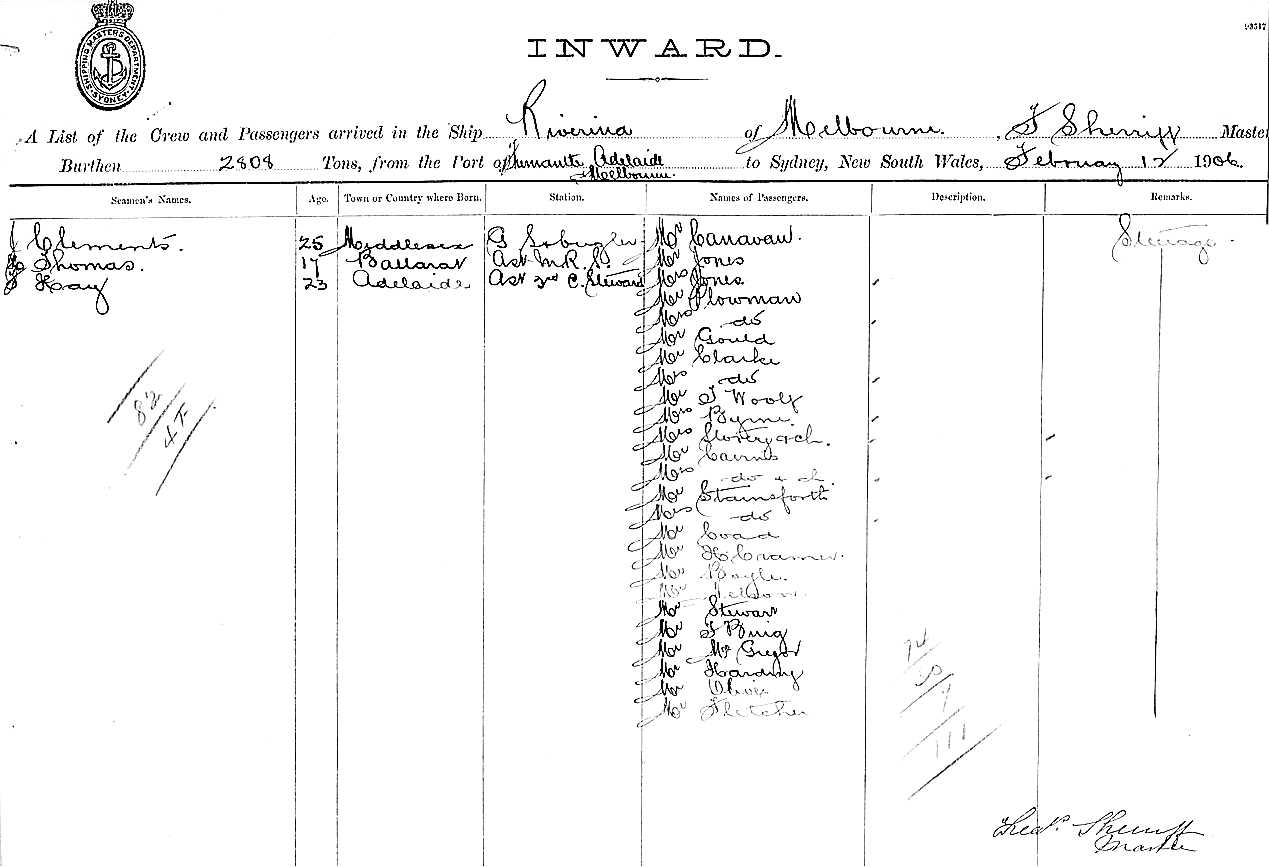 93517
SHIPPING MASTERS DEPARTMENT
SYDNEY
INWARD.
A List of the Crew and Passengers arrived in the Ship Riverina of Melbourne, T Sherriff Master
Burthen 2808 Tons, from the Port of Fremantle, Adelaide to Sydney, New South Wales, February 12 1906.
& Melbourne.
Seamen's Names. Age. Town or Country where Born. Station. Names of Passengers. Description. Remarks.
J Clements. 25 Middlesex G Mr Canavan. Steerage.
Thomas. 17 Ballarat Ast M.R.S. Mr Jones
Hay 23 Adelaide Ast 2nd C. Steward Mrs Jones
Mr Plowman
Mrs do
Mr Gould
Mr Clarke
Mrs do
Mr T Woolf
Mrs Byrne
Mrs & ch.
Mr Cairns
Mrs do & ch.
Mr Stainsforth
Mrs do
Mr Coad
Mr H Cramer.
Mr Boyle.
Mr Nelson.
Mr Stewart
Mr
Mr McGregor
Mr Harding
Mr Oliver
Mr Fletcher
82
47
74
111
Sherriff
Master